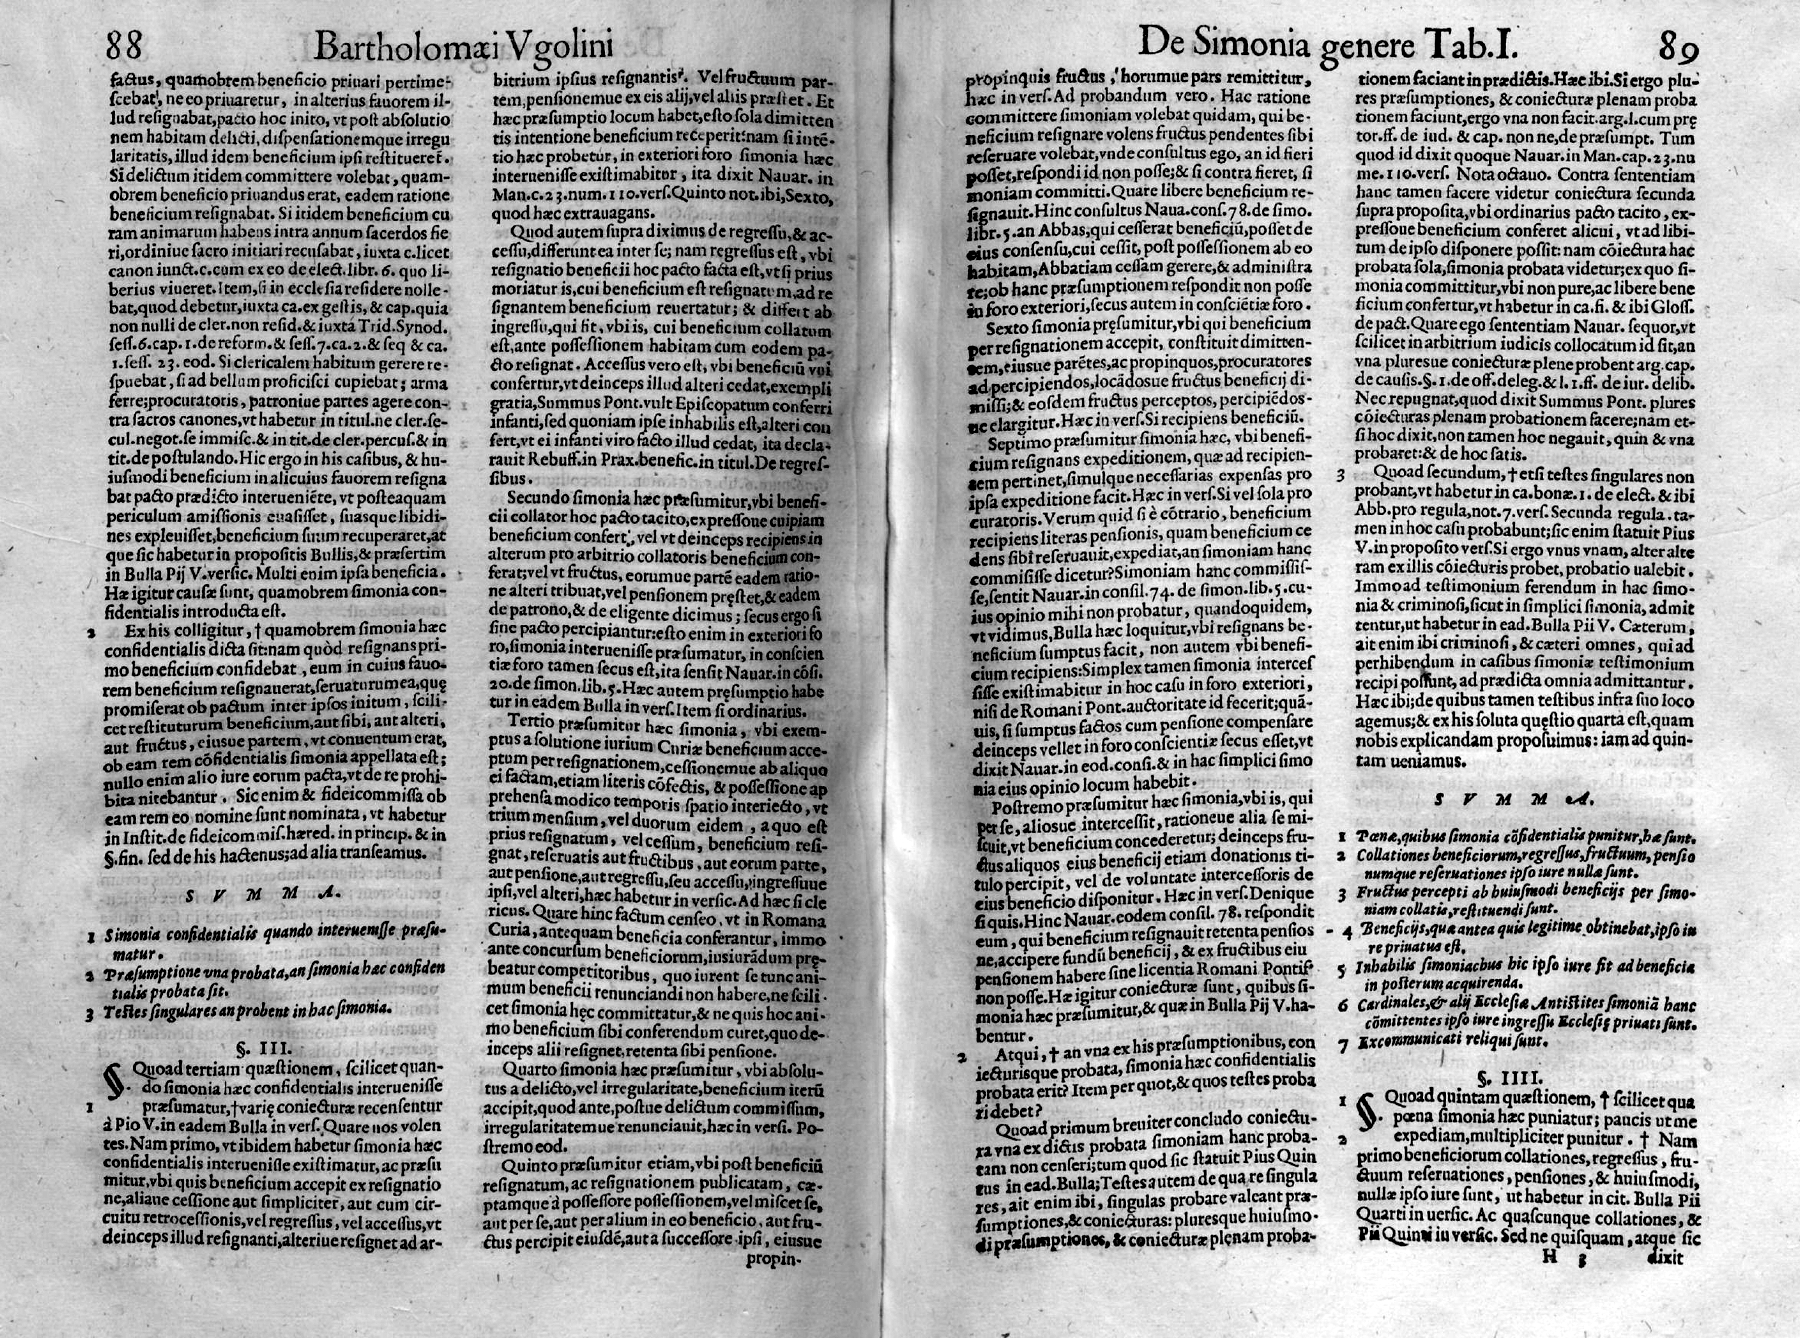 88
Bartholomæi Vgolini
factus, quamobrem beneficio priuari pertime-
scebat, ne eo priuaretur, in alterius fauorem il-
lud resignabat, pacto hoc inito, vt post absolutio
nem habitam delicti, dispensationemque irregu
laritatis, illud idem beneficium ipsi restitueret.
Si delictum itidem committere volebat, quam-
obrem beneficio priuandus erat, eadem ratione
beneficium resignabat. Si itidem beneficium cu
ram animarum habens intra annum sacerdos fie
ri, ordiniue sacro initiari recusabat, iuxta c. licet
canon iunct. c. cum ex eo de elect. libr. 6. quo li-
berius viueret. Item, si in ecclesia residere nolle-
bat, quod debetur, iuxta ca. ex gestis, & cap. quia
non nulli de cler. non resid. & iuxta Trid. Synod.
sess. 6. cap. 1. de reform. & sess. 7. ca. 2. & seq & ca.
1. sess. 23. eod. Si clericalem habitum gerere re-
spuebat, si ad bellum proficisci cupiebat; arma
ferre; procuratoris, patroniue partes agere con-
tra sacros canones, vt habetur in titul. ne cler. se-
cul. negot. se immisc. & in tit. de cler. percus. & in
tit. de postulando. Hic ergo in his casibus, & hu-
iusmodi beneficium in alicuius fauorem resigna
bat pacto prædicto interueniẽte, vt posteaquam
periculum amissionis euasisset, suasque libidi-
nes expleuisset, beneficium suum recuperaret, at
que sic habetur in propositis Bullis, & præsertim
in Bulla Pij V. versic. Multi enim ipsa beneficia.
Hæ igitur causæ sunt, quamobrem simonia con-
fidentialis introducta est.
2 Ex his colligitur, † quamobrem simonia hæc
confidentialis dicta sit: nam quòd resignans pri-
mo beneficium confidebat, eum in cuius fauo-
rem beneficium resignauerat, seruaturum ea, quę
promiserat ob pactum inter ipsos initum, scili-
cet restituturum beneficium, aut sibi, aut alteri,
aut fructus, eiusue partem, vt conuentum erat,
ob eam rem cõfidentialis simonia appellata est;
nullo enim alio iure eorum pacta, vt de re prohi-
bita nitebantur. Sic enim & fideicommissa ob
eam rem eo nomine sunt nominata, vt habetur
in Instit. de fideicommis. hæred. in princip. & in
§. fin. sed de his hactenus; ad alia transeamus.
S V M M A.
1 Simonia confidentialis quando interuenisse præsu-
matur.
2 Præsumptione vna probata, an simonia hæc confiden
tialis probata sit.
3 Testes singulares an probent in hac simonia.
§. III.
§. Quoad tertiam quæstionem, scilicet quan-
do simonia hæc confidentialis interuenisse
1 præsumatur, † varię coniecturæ recensentur
à Pio V. in eadem Bulla in vers. Quare nos volen
tes. Nam primo, vt ibidem habetur simonia hæc
confidentialis interuenisse existimatur, ac præsu
mitur, vbi quis beneficium accepit ex resignatio
ne, aliaue cessione aut simpliciter, aut cum cir-
cuitu retrocessionis, vel regressus, vel accessus, vt
deinceps illud resignanti, alteriue resignet ad ar-
bitrium ipsius resignantis. Vel fructuum par-
tem, pensionemue ex eis alij, vel aliis præstet. Et
hæc præsumptio locum habet, esto sola dimitten
tis intentione beneficium receperit: nam si intẽ-
tio hæc probetur, in exteriori foro simonia hæc
interuenisse existimabitor, ita dixit Nauar. in
Man. c. 23. num. 110. vers. Quinto not. ibi, Sexto,
quod hæc extrauagans.
Quod autem supra diximus de regressu, & ac-
cessu, differunt ea inter se; nam regressus est, vbi
resignatio beneficii hoc pacto facta est, vt si prius
moriatur is, cui beneficium est resignatum, ad re
signantem beneficium reuertatur; & differt ab
ingressu, qui fit, vbi is, cui beneficium collatum
est, ante possessionem habitam cum eodem pa-
cto resignat. Accessus vero est, vbi beneficiũ vni
confertur, vt deinceps illud alteri cedat, exempli
gratia, Summus Pont. vult Episcopatum conferri
infanti, sed quoniam ipse inhabilis est, alteri con
fert, vt ei infanti viro facto illud cedat, ita decla-
rauit Rebuff. in Prax. benefic. in titul. De regres-
sibus.
Secundo simonia hæc præsumitur, vbi benefi-
cii collator hoc pacto tacito, expressoue cuipiam
beneficium confert, vel vt deinceps recipiens in
alterum pro arbitrio collatoris beneficium con-
ferat; vel vt fructus, eorumue partẽ eadem ratio-
ne alteri tribuat, vel pensionem pręstet, & eadem
de patrono, & de eligente dicimus; secus ergo si
sine pacto percipiantur: esto enim in exteriori fo
ro, simonia interuenisse præsumatur, in conscien
tiæ foro tamen secus est, ita sensit Nauar. in cõsi.
20. de simon. lib. 5. Hæc autem pręsumptio habe
tur in eadem Bulla in vers. Item si ordinarius.
Tertio præsumitur hæc simonia, vbi exem-
ptus a solutione iurium Curiæ beneficium acce-
ptum per resignationem, cessionemue ab aliquo
ei factam, etiam literis cõfectis, & possessione ap
prehensa modico temporis spatio interiecto, vt
trium mensium, vel duorum eidem, a quo est
prius resignatum, vel cessum, beneficium resi-
gnat, reseruatis aut fructibus, aut eorum parte,
aut pensione, aut regressu, seu accessu, ingressuue
ipsi, vel alteri, hæc habetur in versic. Ad hæc si cle
ricus. Quare hinc factum censeo, vt in Romana
Curia, antequam beneficia conferantur, immo
ante concursum beneficiorum, iusiurãdum prę-
beatur competitoribus, quo iurent se tunc ani-
mum beneficii renunciandi non habere, ne scili-
cet simonia hęc committatur, & ne quis hoc ani-
mo beneficium sibi conferendum curet, quo de-
inceps alii resignet, retenta sibi pensione.
Quarto simonia hæc præsumitur, vbi absolu-
tus a delicto, vel irregularitate, beneficium iterũ
accipit, quod ante, postue delictum commissum,
irregularitatemue renunciauit, hæc in versi. Po-
stremo eod.
Quinto præsumitur etiam, vbi post beneficiũ
resignatum, ac resignationem publicatam, cæ-
ptamque à possessore possessionem, vel miscet se,
aut per se, aut per alium in eo beneficio, aut fru-
ctus percipit eiusdẽ, aut a successore ipsi, eiusue
propin-
De Simonia genere Tab. I.
89
propinquis fructus, horumue pars remittitur,
hæc in vers. Ad probandum vero. Hac ratione
committere simoniam volebat quidam, qui be-
neficium resignare volens fructus pendentes sibi
reseruare volebat, vnde consultus ego, an id fieri
posset, respondi id non posse; & si contra fieret, si
moniam committi. Quare libere beneficium re-
signauit. Hinc consultus Naua. cons. 78. de simo.
libr. 5. an Abbas, qui cesserat beneficiũ, posset de
eius consensu, cui cessit, post possessionem ab eo
habitam, Abbatiam cessam gerere, & administra
re; ob hanc præsumptionem respondit non posse
in foro exteriori, secus autem in consciẽtiæ foro.
Sexto simonia pręsumitur, vbi qui beneficium
per resignationem accepit, constituit dimitten-
tem, eiusue parẽtes, ac propinquos, procuratores
ad percipiendos, locãdosue fructus beneficij di-
missi; & eosdem fructus perceptos, percipiẽdos-
ue elargitur. Hæc in vers. Si recipiens beneficiũ.
Septimo præsumitur simonia hæc, vbi benefi-
cium resignans expeditionem, quæ ad recipien-
tem pertinet, simulque necessarias expensas pro
ipsa expeditione facit. Hæc in vers. Si vel sola pro
curatoris. Verum quid si è cõtrario, beneficium
recipiens literas pensionis, quam beneficium ce
dens sibi reseruauit, expediat, an simoniam hanc
commisisse dicetur? Simoniam hanc commisis-
se, sentit Nauar. in consil. 74. de simon. lib. 5. cu-
ius opinio mihi non probatur, quandoquidem,
vt vidimus, Bulla hæc loquitur, vbi resignans be-
neficium sumptus facit, non autem vbi benefi-
cium recipiens: Simplex tamen simonia interces
sisse existimabitur in hoc casu in foro exteriori,
nisi de Romani Pont. auctoritate id fecerit; quã-
uis, si sumptus factos cum pensione compensare
deinceps vellet in foro conscientiæ secus esset, vt
dixit Nauar. in eod. consi. & in hac simplici simo
nia eius opinio locum habebit.
Postremo præsumitur hæc simonia, vbi is, qui
per se, aliosue intercessit, rationeue alia se mi-
scuit, vt beneficium concederetur; deinceps fru-
ctus aliquos eius beneficij etiam donationis ti-
tulo percipit, vel de voluntate intercessoris de
eius beneficio disponitur. Hæc in vers. Denique
si quis. Hinc Nauar. eodem consil. 78. respondit
eum, qui beneficium resignauit retenta pensios
ne, accipere fundũ beneficij, & ex fructibus eiu
pensionem habere sine licentia Romani Pontif.
non posse. Hæ igitur coniecturæ sunt, quibus si-
monia hæc præsumitur, & quæ in Bulla Pij V. ha-
bentur.
2 Atqui, † an vna ex his præsumptionibus, con
iecturisque probata, simonia hæc confidentialis
probata erit? Item per quot, & quos testes proba
ri debet?
Quoad primum breuiter concludo coniectu-
ra vna ex dictis probata simoniam hanc proba-
tam non censeri; tum quod sic statuit Pius Quin
tus in ead. Bulla; Testes autem de qua re singula
res, ait enim ibi, singulas probare valeant præ-
sumptiones, & coniecturas: pluresque huiusmo-
di præsumptiones, & coniecturæ plenam proba-
tionem faciant in prædictis. Hæc ibi. Si ergo plu-
res præsumptiones, & coniecturæ plenam proba
tionem faciunt, ergo vna non facit. arg. l. cum prę
tor. ff. de iud. & cap. non ne, de præsumpt. Tum
quod id dixit quoque Nauar. in Man. cap. 23. nu
me. 110. vers. Nota octauo. Contra sententiam
hanc tamen facere videtur coniectura secunda
supra proposita, vbi ordinarius pacto tacito, ex-
pressoue beneficium conferet alicui, vt ad libi-
tum de ipso disponere possit: nam cõiectura hac
probata sola, simonia probata videtur; ex quo si-
monia committitur, vbi non pure, ac libere bene
ficium confertur, vt habetur in ca. fi. & ibi Gloss.
de pact. Quare ego sententiam Nauar. sequor, vt
scilicet in arbitrium iudicis collocatum id sit, an
vna pluresue coniecturæ plene probent arg. cap.
de causis. §. 1. de off. deleg. & l. 1. ff. de iur. delib.
Nec repugnat, quod dixit Summus Pont. plures
cõiecturas plenam probationem facere; nam et-
si hoc dixit, non tamen hoc negauit, quin & vna
probaret: & de hoc satis.
3 Quoad secundum, † etsi testes singulares non
probant, vt habetur in ca. bonæ. 1. de elect. & ibi
Abb. pro regula, not. 7. vers. Secunda regula. ta-
men in hoc casu probabunt; sic enim statuit Pius
V. in proposito vers. Si ergo vnus vnam, alter alte
ram ex illis cõiecturis probet, probatio ualebit.
Immo ad testimonium ferendum in hac simo-
nia & criminosi, sicut in simplici simonia, admit
tentur, ut habetur in ead. Bulla Pii V. Cæterum,
ait enim ibi criminosi, & cæteri omnes, qui ad
perhibendum in casibus simoniæ testimonium
recipi possunt, ad prædicta omnia admittantur.
Hæc ibi; de quibus tamen testibus infra suo loco
agemus; & ex his soluta quęstio quarta est, quam
nobis explicandam proposuimus: iam ad quin-
tam ueniamus.
S V M M A.
1 Pœnæ, quibus simonia cõfidentialis punitur, hæ sunt.
2 Collationes beneficiorum, regressus, fructuum, pensio
numque reseruationes ipso iure nullæ sunt.
3 Fructus percepti ab huiusmodi beneficijs per simo-
niam collatis, restituendi sunt.
4 Beneficijs, quæ antea quis legitime obtinebat, ipso iu
re priuatus est.
5 Inhabilis simoniacbus hic ipso iure fit ad beneficia
in posterum acquirenda.
6 Cardinales, & alij Ecclesiæ Antistites simoniã hanc
cõmittentes ipso iure ingressu Ecclesię priuati sunt.
7 Excommunicati reliqui sunt.
§. IIII.
1 §. Quoad quintam quæstionem, † scilicet qua
pœna simonia hæc puniatur; pancis ut me
2 expediam, multipliciter punitur. † Nam
primo beneficiorum collationes, regressus, fru-
ctuum reseruationes, pensiones, & huiusmodi,
nullæ ipso iure sunt, ut habetur in cit. Bulla Pii
Quarti in uersic. Ac quascunque collationes, &
Pii Quinti iu versic. Sed ne quisquam, atque sic
H 3 dixit